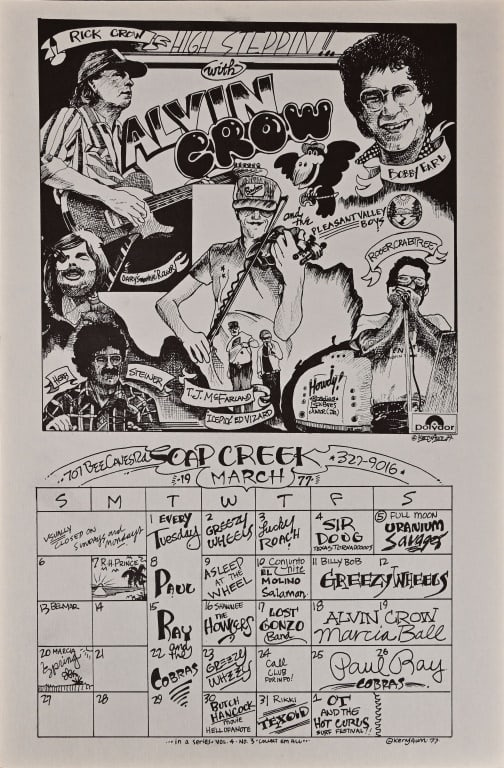 RICK CROW
HIGH STEPPIN'!!
with
ALVIN
CROW
BOBBY EARL
and the
PLEASANT VALLEY
BOYS
ROGER CRABTREE
HERB
STEINER
T.J. McFARLAND
"ICEPICK" ED VIZARD
Howdy!
Polydor
707 BEE CAVES RD.
SOAP CREEK
327-9016
19 MARCH 77
S M T W T F S
USUALLY
CLOSED ON
SUNDAYS and
MONDAYS
1 EVERY
Tuesday
2 GREEZY
WHEELS
3 Lucky
ROACH
4 SIR
DOUG
TEXAS TORNADOOOS
5 FULL MOON
URANIUM
Savages
6
7 R.H. PRINCE
8
PAUL
9
ASLEEP
AT THE
WHEEL
10 Conjunto
nite
EL
MOLINO
Salaman
11 BILLY BOB
12
GREEZY WHEELS
13 BELMAR
14
15
RAY
16 SHAWNEE
THE
HOWLERS
17
LOST
GONZO
Band
18
19
ALVIN CROW
Marcia Ball
20 MARCIA
Spring
21
22 and
THE
COBRAS
23
GREEZY
WHEEZY
24
CALL
CLUB
FOR INFO!
25
26
Paul Ray
COBRAS
27
28
29
30
BUTCH
HANCOCK
movie
HELLOFANOTE
31 Rikki
TEXOID
1 OT
AND THE
HOT CURLS
SURF FESTIVAL!!
... in a series • VOL. 4 • NO. 3 • COLLECT EM ALL ...
@kerry awn 77